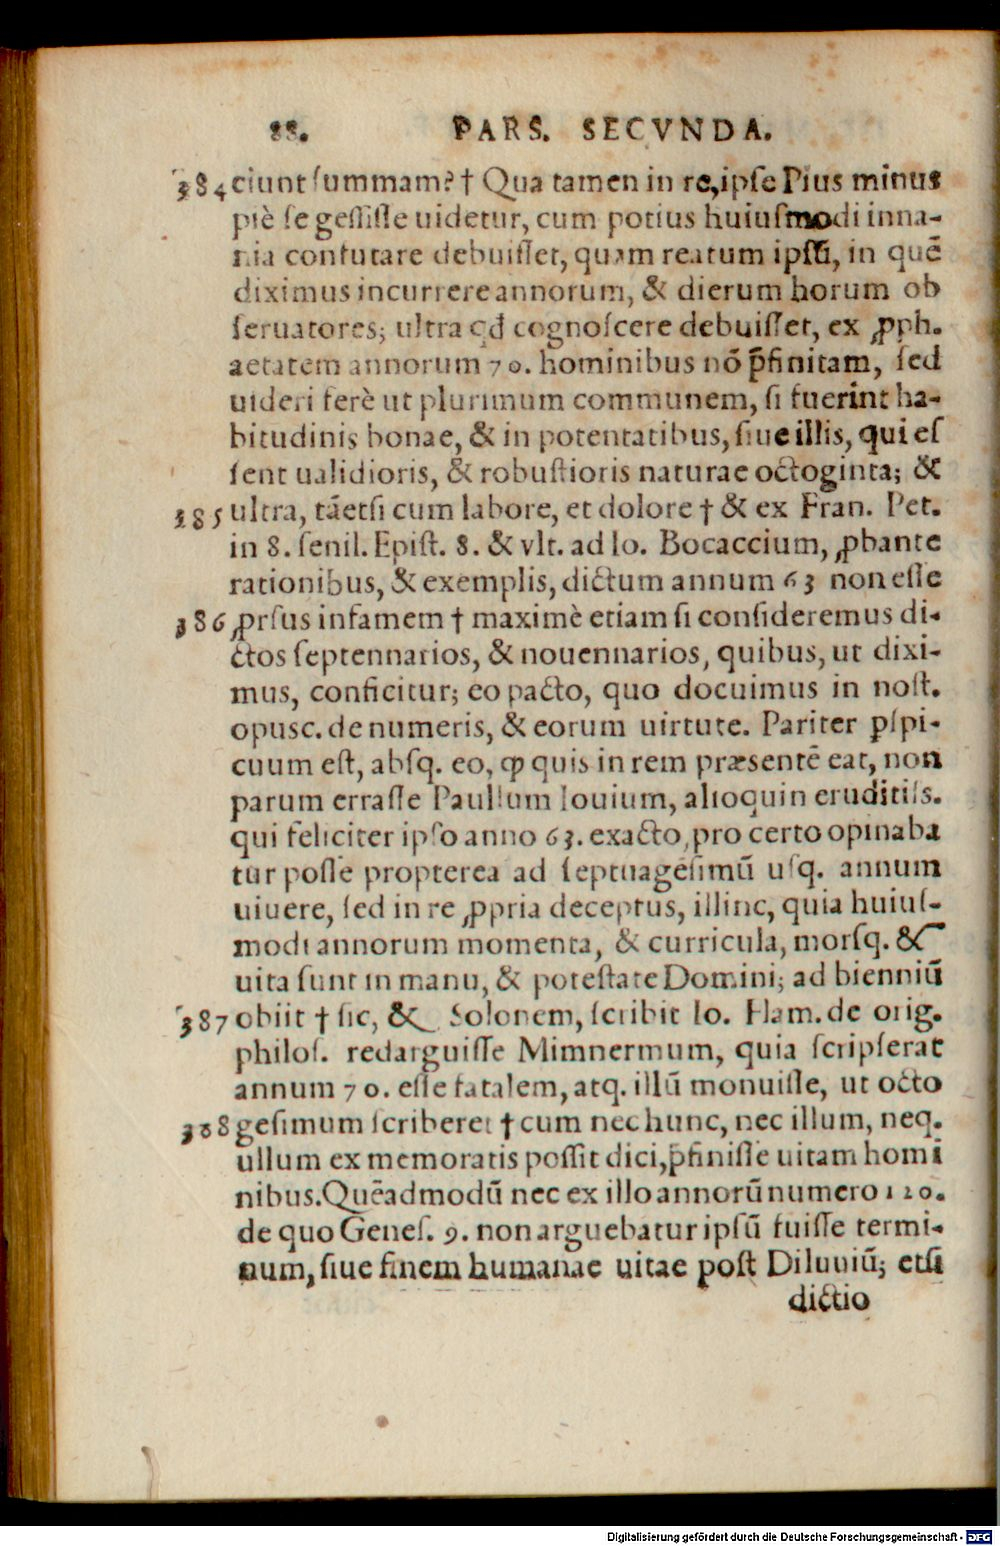 88. PARS. SECVNDA.
384 ciunt ſummam? † Qua tamen in re, ipſe Pius minus
piè ſe geſſiſſe uidetur, cum potius huiuſmodi inna-
nia confutare debuiſſet, quam reatum ipſũ, in quẽ
diximus incurrere annorum, & dierum horum ob
ſeruatores; ultra qđ cognoſcere debuiſſet, ex ꝓph.
aetatem annorum 70. hominibus nõ p̃finitam, ſed
uideri ferè ut plurimum communem, ſi fuerint ha-
bitudinis bonae, & in potentatibus, ſiue illis, qui eſ
ſent ualidioris, & robuſtioris naturae octoginta; &
385 ultra, tãetſi cum labore, et dolore † & ex Fran. Pet.
in 8. ſenil. Epiſt. 8. & vlt. ad Io. Bocaccium, ꝓbante
rationibus, & exemplis, dictum annum 63 non eſſe
386 ꝓrſus infamem † maximè etiam ſi conſideremus di-
ctos ſeptennarios, & nouennarios, quibus, ut dixi-
mus, conficitur; eo pacto, quo docuimus in noſt.
opuſc. de numeris, & eorum uirtute. Pariter ꝑſpi-
cuum eſt, abſq. eo, ꝙ quis in rem præsentẽ eat, non
parum erraſſe Paullum Iouium, alioquin eruditiſs.
qui feliciter ipſo anno 63. exacto, pro certo opinaba
tur poſſe propterea ad ſeptuageſimũ uſq. annum
uiuere, ſed in re ꝓpria deceptus, illinc, quia huiuſ-
modi annorum momenta, & curricula, morſq. &
uita ſunt in manu, & poteſtate Domini; ad bienniũ
387 obiit † ſic, & Solonem, ſcribit Io. Ham. de orig.
philoſ. redarguiſſe Mimnermum, quia ſcripſerat
annum 70. eſſe fatalem, atq. illũ monuiſſe, ut octo
388 geſimum ſcriberet † cum nec hunc, nec illum, neq.
ullum ex memoratis poſſit dici, p̃finiſſe uitam homi
nibus. Quẽadmodũ nec ex illo annorũ numero 120.
de quo Geneſ. 9. non arguebatur ipſũ fuiſſe termi-
num, ſiue finem humanae uitae poſt Diluuiũ; etſi
dictio
Digitalisierung gefördert durch die Deutsche Forschungsgemeinschaft - DFG